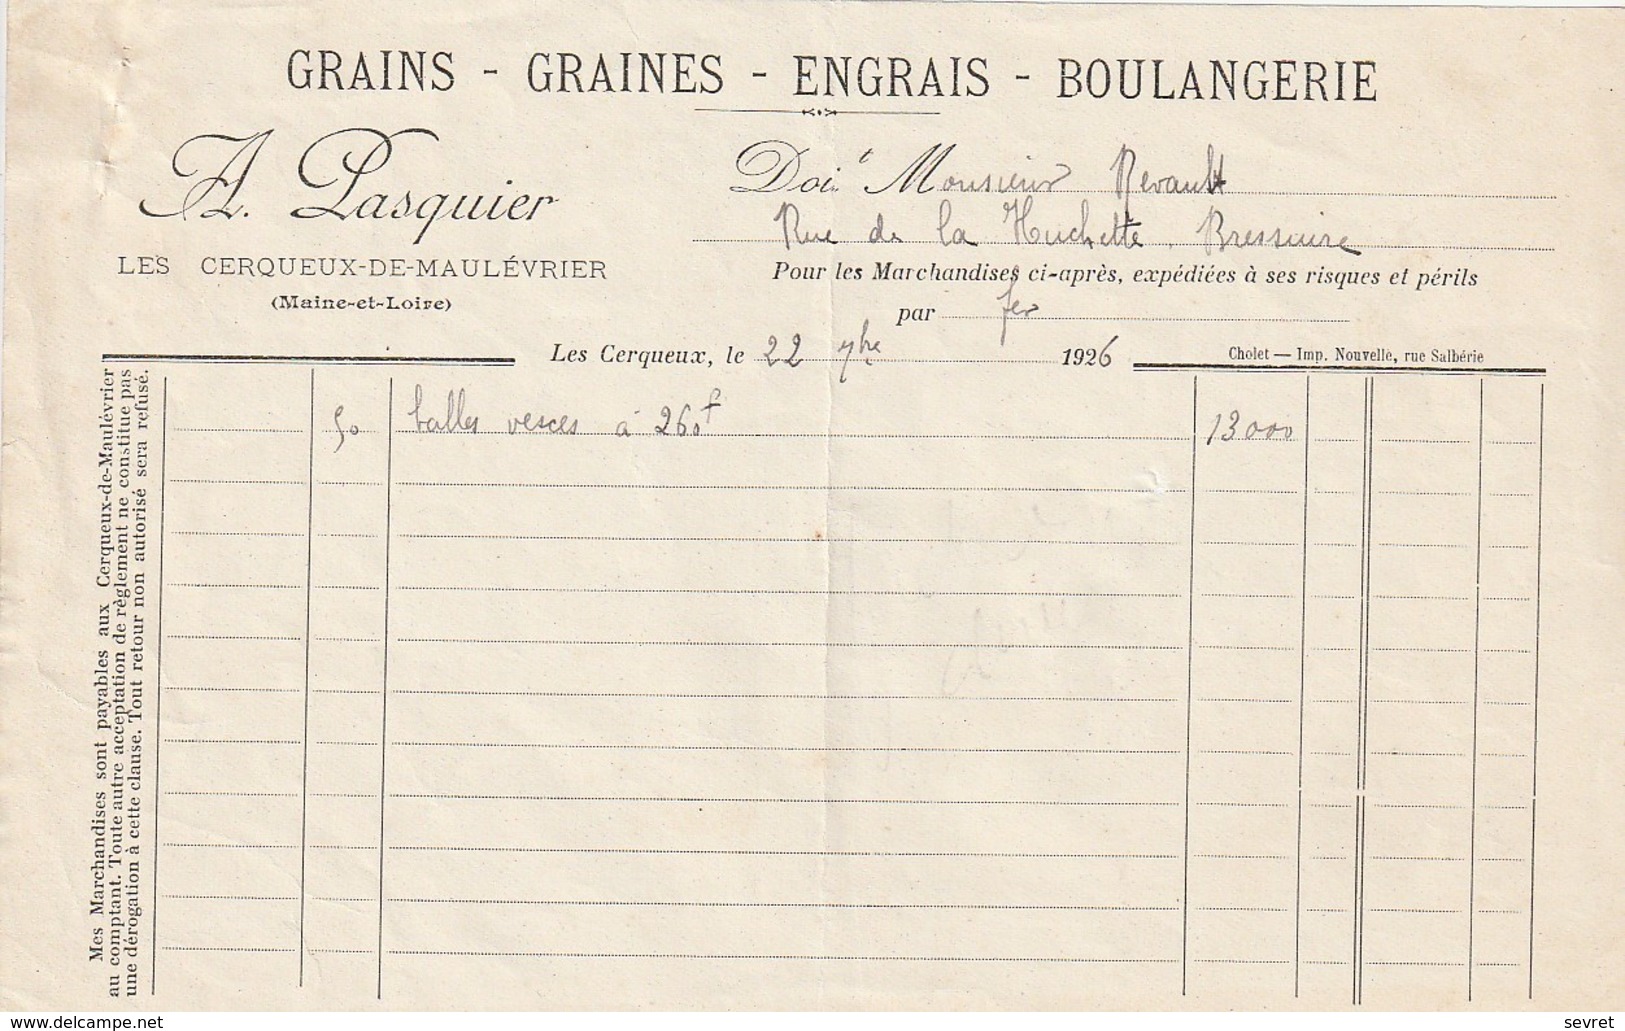 GRAINS - GRAINES - ENGRAIS - BOULANGERIE
A. Pasquier
LES CERQUEUX-DE-MAULÉVRIER
(Maine-et-Loire)
Doit Monsieur Revault
Rue de la Huchette. Bressuire
Pour les Marchandises ci-après, expédiées à ses risques et périls
par fer
Les Cerqueux, le 22 7bre 1926
Cholet — Imp. Nouvelle, rue Salbérie
50 balles vesces à 260f 13000
Mes Marchandises sont payables aux Cerqueux-de-Maulévrier
au comptant. Toute autre acceptation de règlement ne constitue pas
une dérogation à cette clause. Tout retour non autorisé sera refusé.
www.delcampe.net
sevret